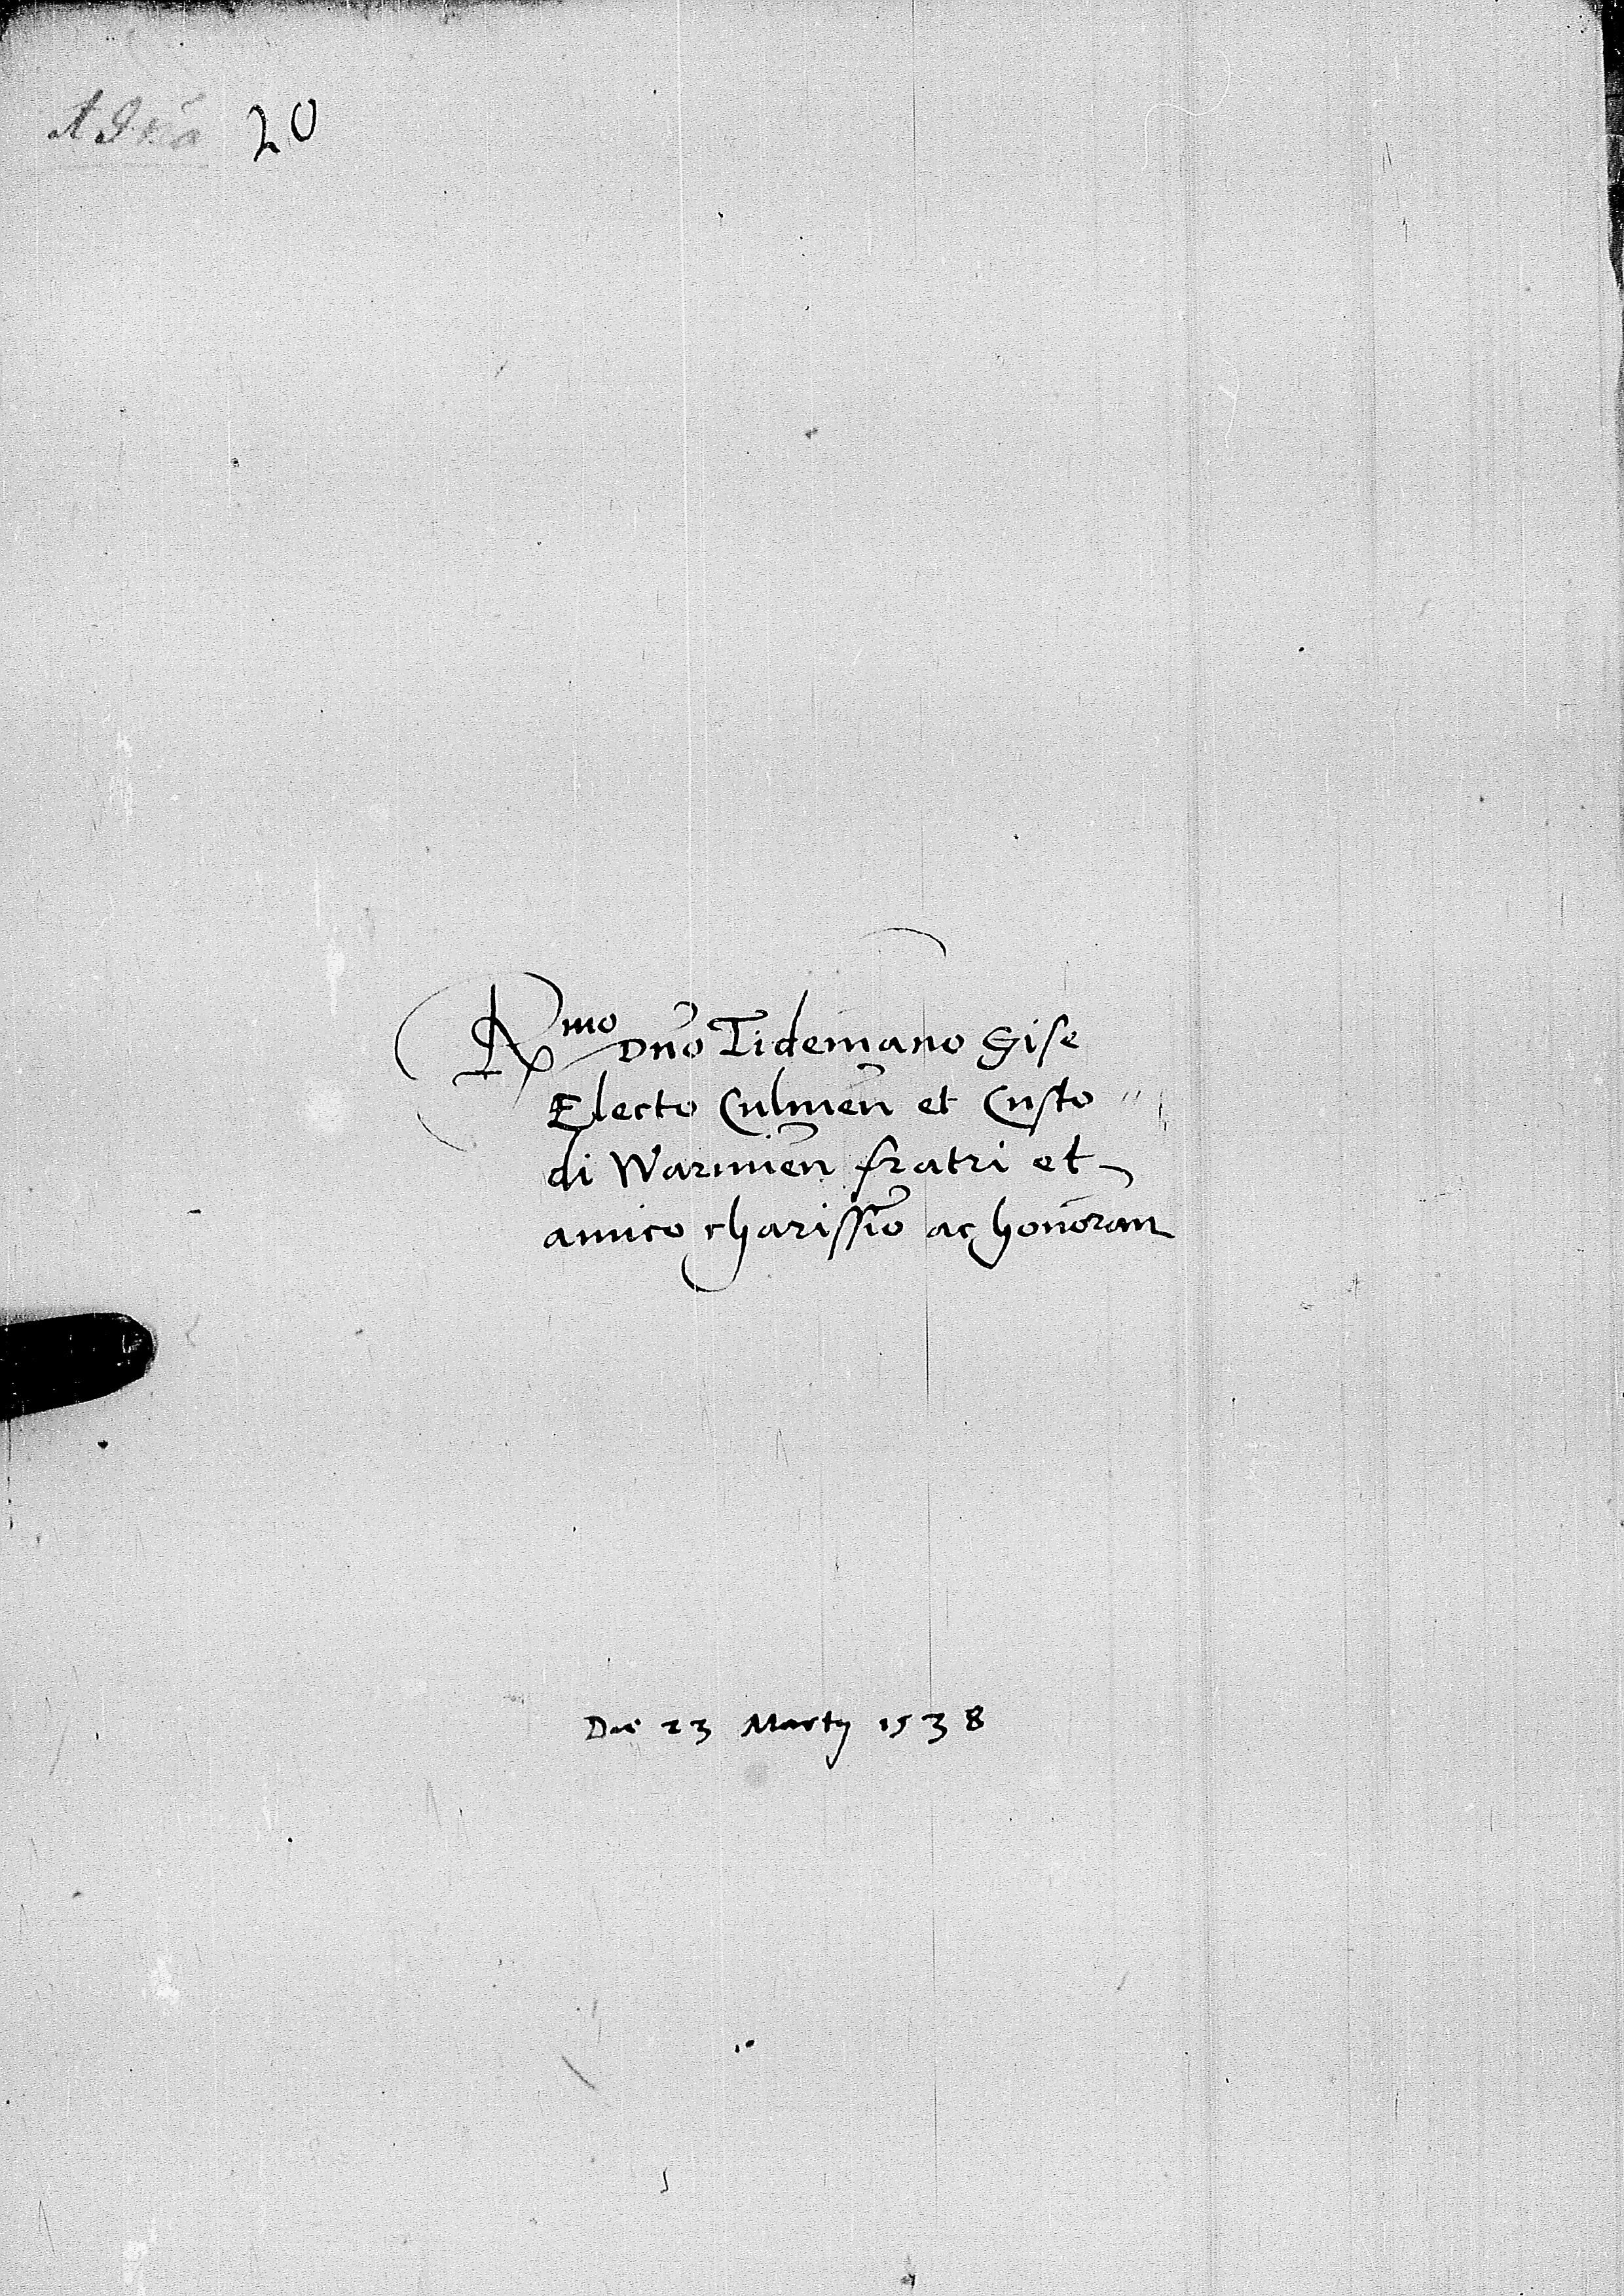 20
Rmo Dno Tidemano Gise
Electo Culmen̄ et Custo"
di Warmien̄ fratri et
amico charissio ac honoran
Die 23 Martij 1538